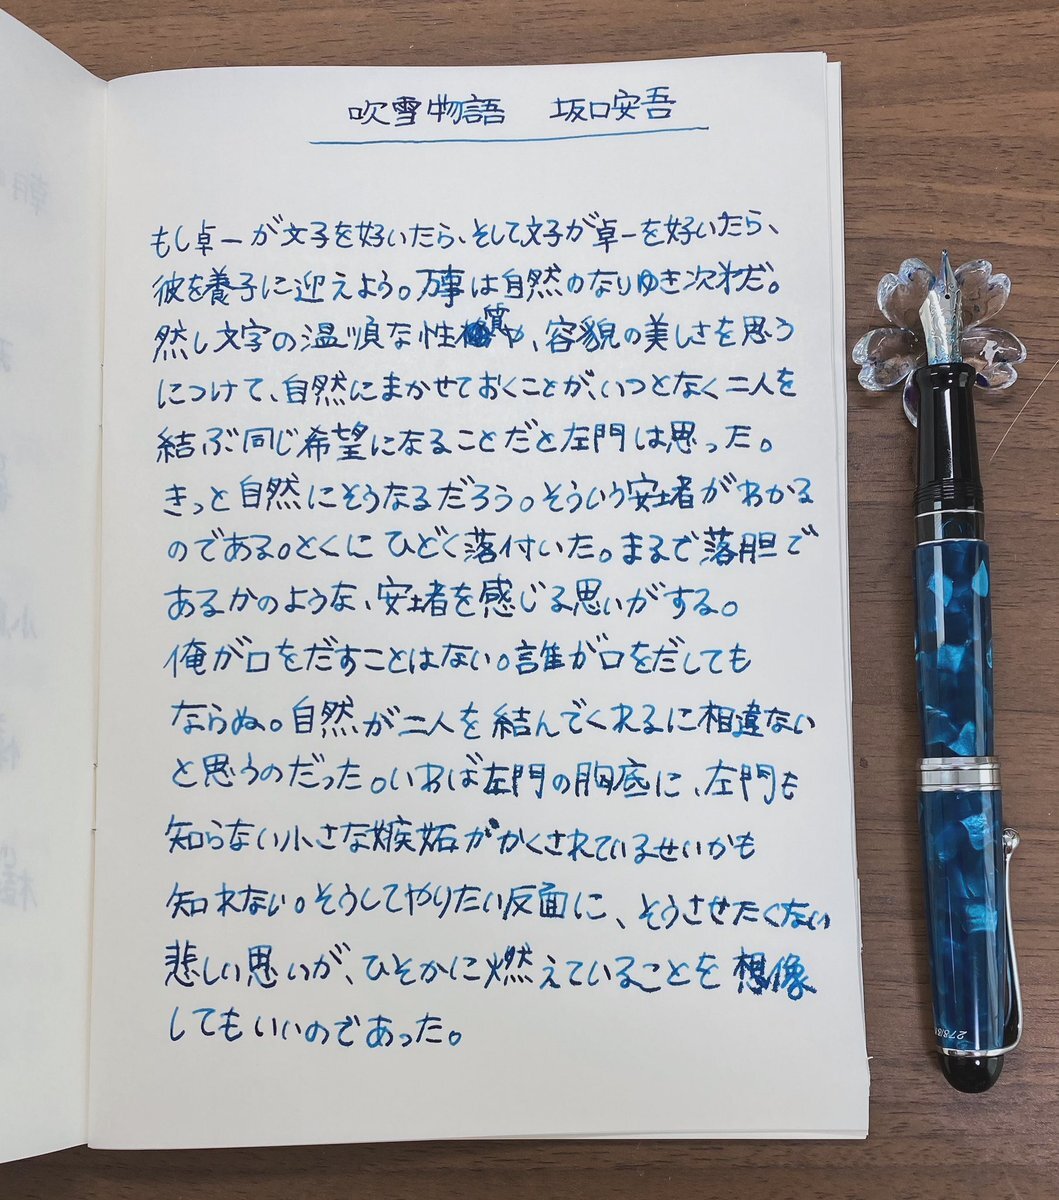 吹雪物語　坂口安吾
もし卓一が文子を好いたら、そして文子が卓一を好いたら、
彼を養子に迎えよう。万事は自然のなりゆき次第だ。
然し文子の温順な性質や、容貌の美しさを思う
につけて、自然にまかせておくことが、いつとなく二人を
結ぶ同じ希望になることだと左門は思った。
きっと自然にそうなるだろう。そういう安堵がわかる
のである。とくにひどく落付いた。まるで落胆で
あるかのような、安堵を感じる思いがする。
俺が口をだすことはない。誰が口をだしても
ならぬ。自然が二人を結んでくれるに相違ない
と思うのだった。いわば左門の胸底に、左門も
知らない小さな嫉妬がかくされているせいかも
知れない。そうしてやりたい反面に、そうさせたくない
悲しい思いが、ひそかに燃えていることを想像
してもいいのであった。